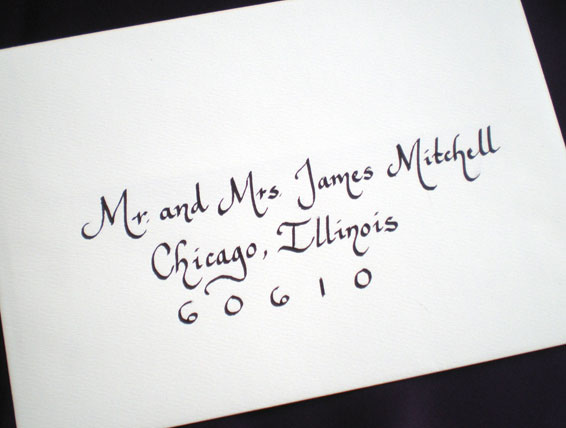 Mr. and Mrs. James Mitchell
Chicago, Illinois
60610